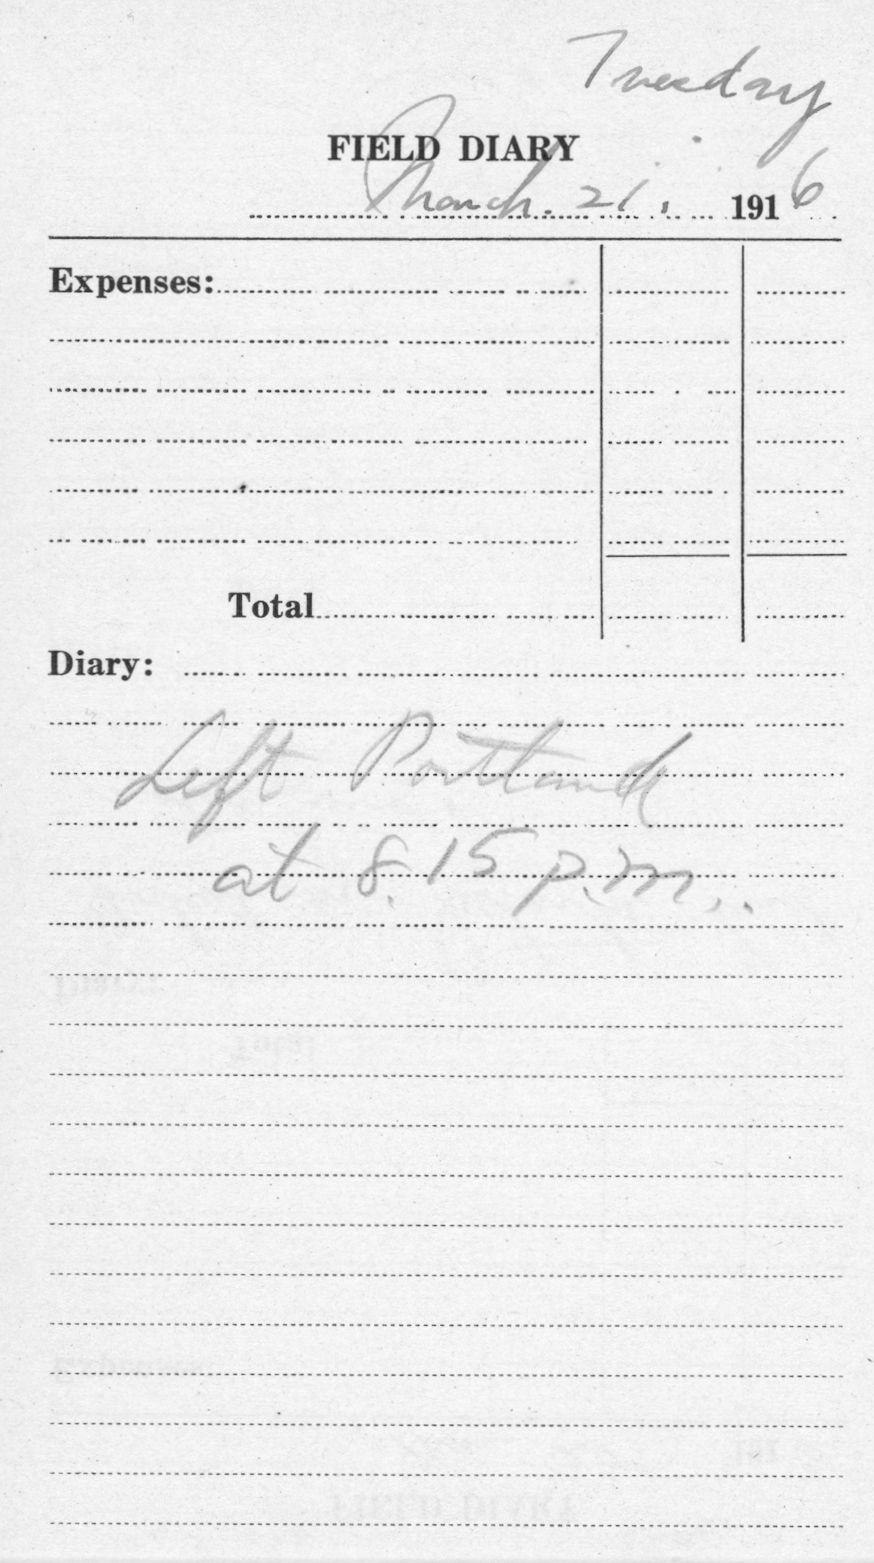 Tuesday
FIELD DIARY
March. 21, 1916
Expenses:
Total
Diary:
Left Portland
at 8.15 p.m..